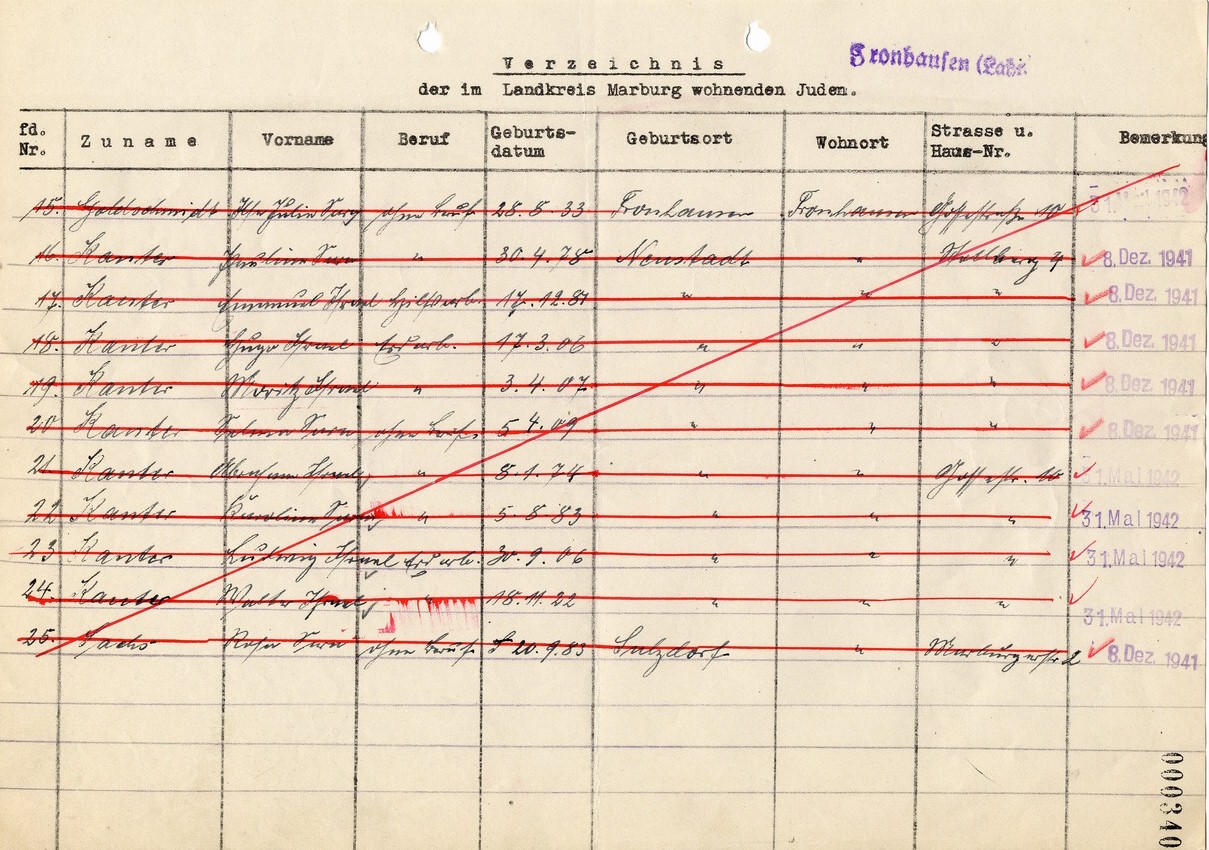 Fronhausen (Lahn
Verzeichnis
der im Landkreis Marburg wohnenden Juden.
fd. Nr. Zuname Vorname Beruf Geburts-datum Geburtsort Wohnort Strasse u. Haus-Nr. Bemerkung
15. Goldschmidt Ilse Julie Sara ohne Beruf 28. 8. 33 Fronhausen Fronhausen 31. Mai 1942
16. Kanter Pauline Sara " 30. 4. 78 Neustadt " 8. Dez. 1941
17. Kanter Emmanuel Israel Hilfsarb. 17. 12. 81 " " " 8. Dez. 1941
18. Kanter Hugo Israel Erdarb. 17. 3. 06 " " " 8. Dez. 1941
19. Kanter Moritz Israel " 3. 4. 07 " " " 8. Dez. 1941
20 Kanter Selma Sara ohne Beruf 5 4. 09 " " " 8. Dez. 1941
21 Kanter Abraham Israel " 8. 1. 74 " " 31. Mai 1942
22 Kanter Karoline Sara " 5. 8 83 " " " 31. Mai 1942
23 Kanter Ludwig Israel Erdarb. 30. 9. 06 " " " 31. Mai 1942
24. Kanter Walter Israel " 18. 11. 22 " " " 31. Mai 1942
25. Sachs Rosa Sara ohne Beruf 20. 9. 83 Sulzdorf " Marburgerstr. 2 8. Dez. 1941
000340